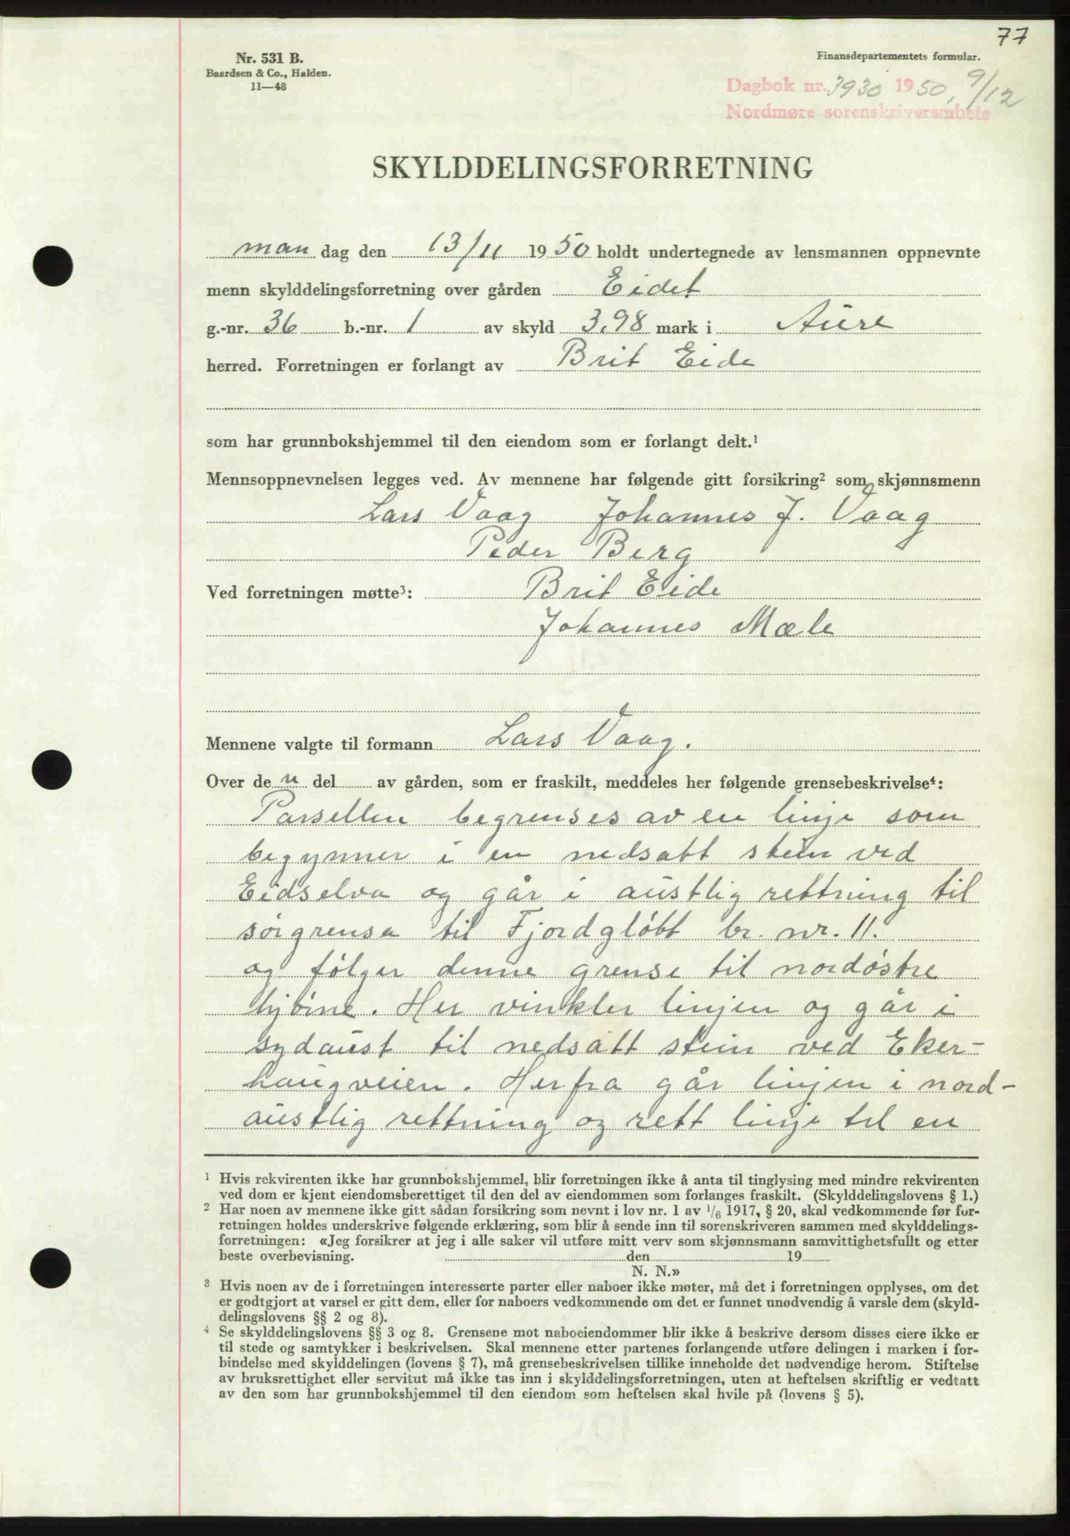 77
Nr. 531 B.
Baardsen & Co., Halden.
11—48
Finansdepartementets formular.
Dagbok nr. 3930 1950, 9/12
Nordmøre sorenskriverembete
SKYLDDELINGSFORRETNING
man dag den 13/11 1950 holdt undertegnede av lensmannen oppnevnte
menn skylddelingsforretning over gården Eidet
g.-nr. 36 b.-nr. 1 av skyld 3,98 mark i Aure
herred. Forretningen er forlangt av Brit Eide
som har grunnbokshjemmel til den eiendom som er forlangt delt.¹
Mennsoppnevnelsen legges ved. Av mennene har følgende gitt forsikring² som skjønnsmenn
Lars Vaag Johannes J. Vaag
Peder Berg
Ved forretningen møtte³: Brit Eide
Johannes Mæle
Mennene valgte til formann Lars Vaag.
Over de n del av gården, som er fraskilt, meddeles her følgende grensebeskrivelse⁴:
Parsellen begrenses av en linje som
begynner i en nedsatt stein ved
Eidselva og går i austlig rettning til
sørgrensa til Fjordgløtt br. nr. 11.
og følger denne grense til nordøstre
hjørne. Her vinkler linjen og går i
sydaust til nedsatt stein ved Eker-
haugveien. Herfra går linjen i nord-
austlig rettning og rett linje til en
¹ Hvis rekvirenten ikke har grunnbokshjemmel, blir forretningen ikke å anta til tinglysing med mindre rekvirenten
ved dom er kjent eiendomsberettiget til den del av eiendommen som forlanges fraskilt. (Skylddelingslovens § 1.)
² Har noen av mennene ikke gitt sådan forsikring som nevnt i lov nr. 1 av 1/6 1917, § 20, skal vedkommende før for-
retningen holdes underskrive følgende erklæring, som blir å sende inn til sorenskriveren sammen med skylddelings-
forretningen: «Jeg forsikrer at jeg i alle saker vil utføre mitt verv som skjønnsmann samvittighetsfullt og etter
beste overbevisning. den 19
N. N.»
³ Hvis noen av de i forretningen interesserte parter eller naboer ikke møter, må det i forretningen opplyses, om det
er godtgjort at varsel er gitt dem, eller for naboers vedkommende om det er funnet unødvendig å varsle dem (skyld-
delingslovens §§ 2 og 8).
⁴ Se skylddelingslovens §§ 3 og 8. Grensene mot naboeiendommer blir ikke å beskrive dersom disses eiere ikke er
til stede og samtykker i beskrivelsen. Skal mennene etter partenes forlangende utføre delingen i marken i for-
bindelse med skylddelingen (lovens § 7), må grensebeskrivelsen tillike inneholde det nødvendige herom. Stiftelse
av bruksrettighet eller servitut må ikke tas inn i skylddelingsforretningen, uten at heftelsen skriftlig er vedtatt
av den som har grunnbokshjemmel til den eiendom som heftelsen skal hvile på (lovens § 5).